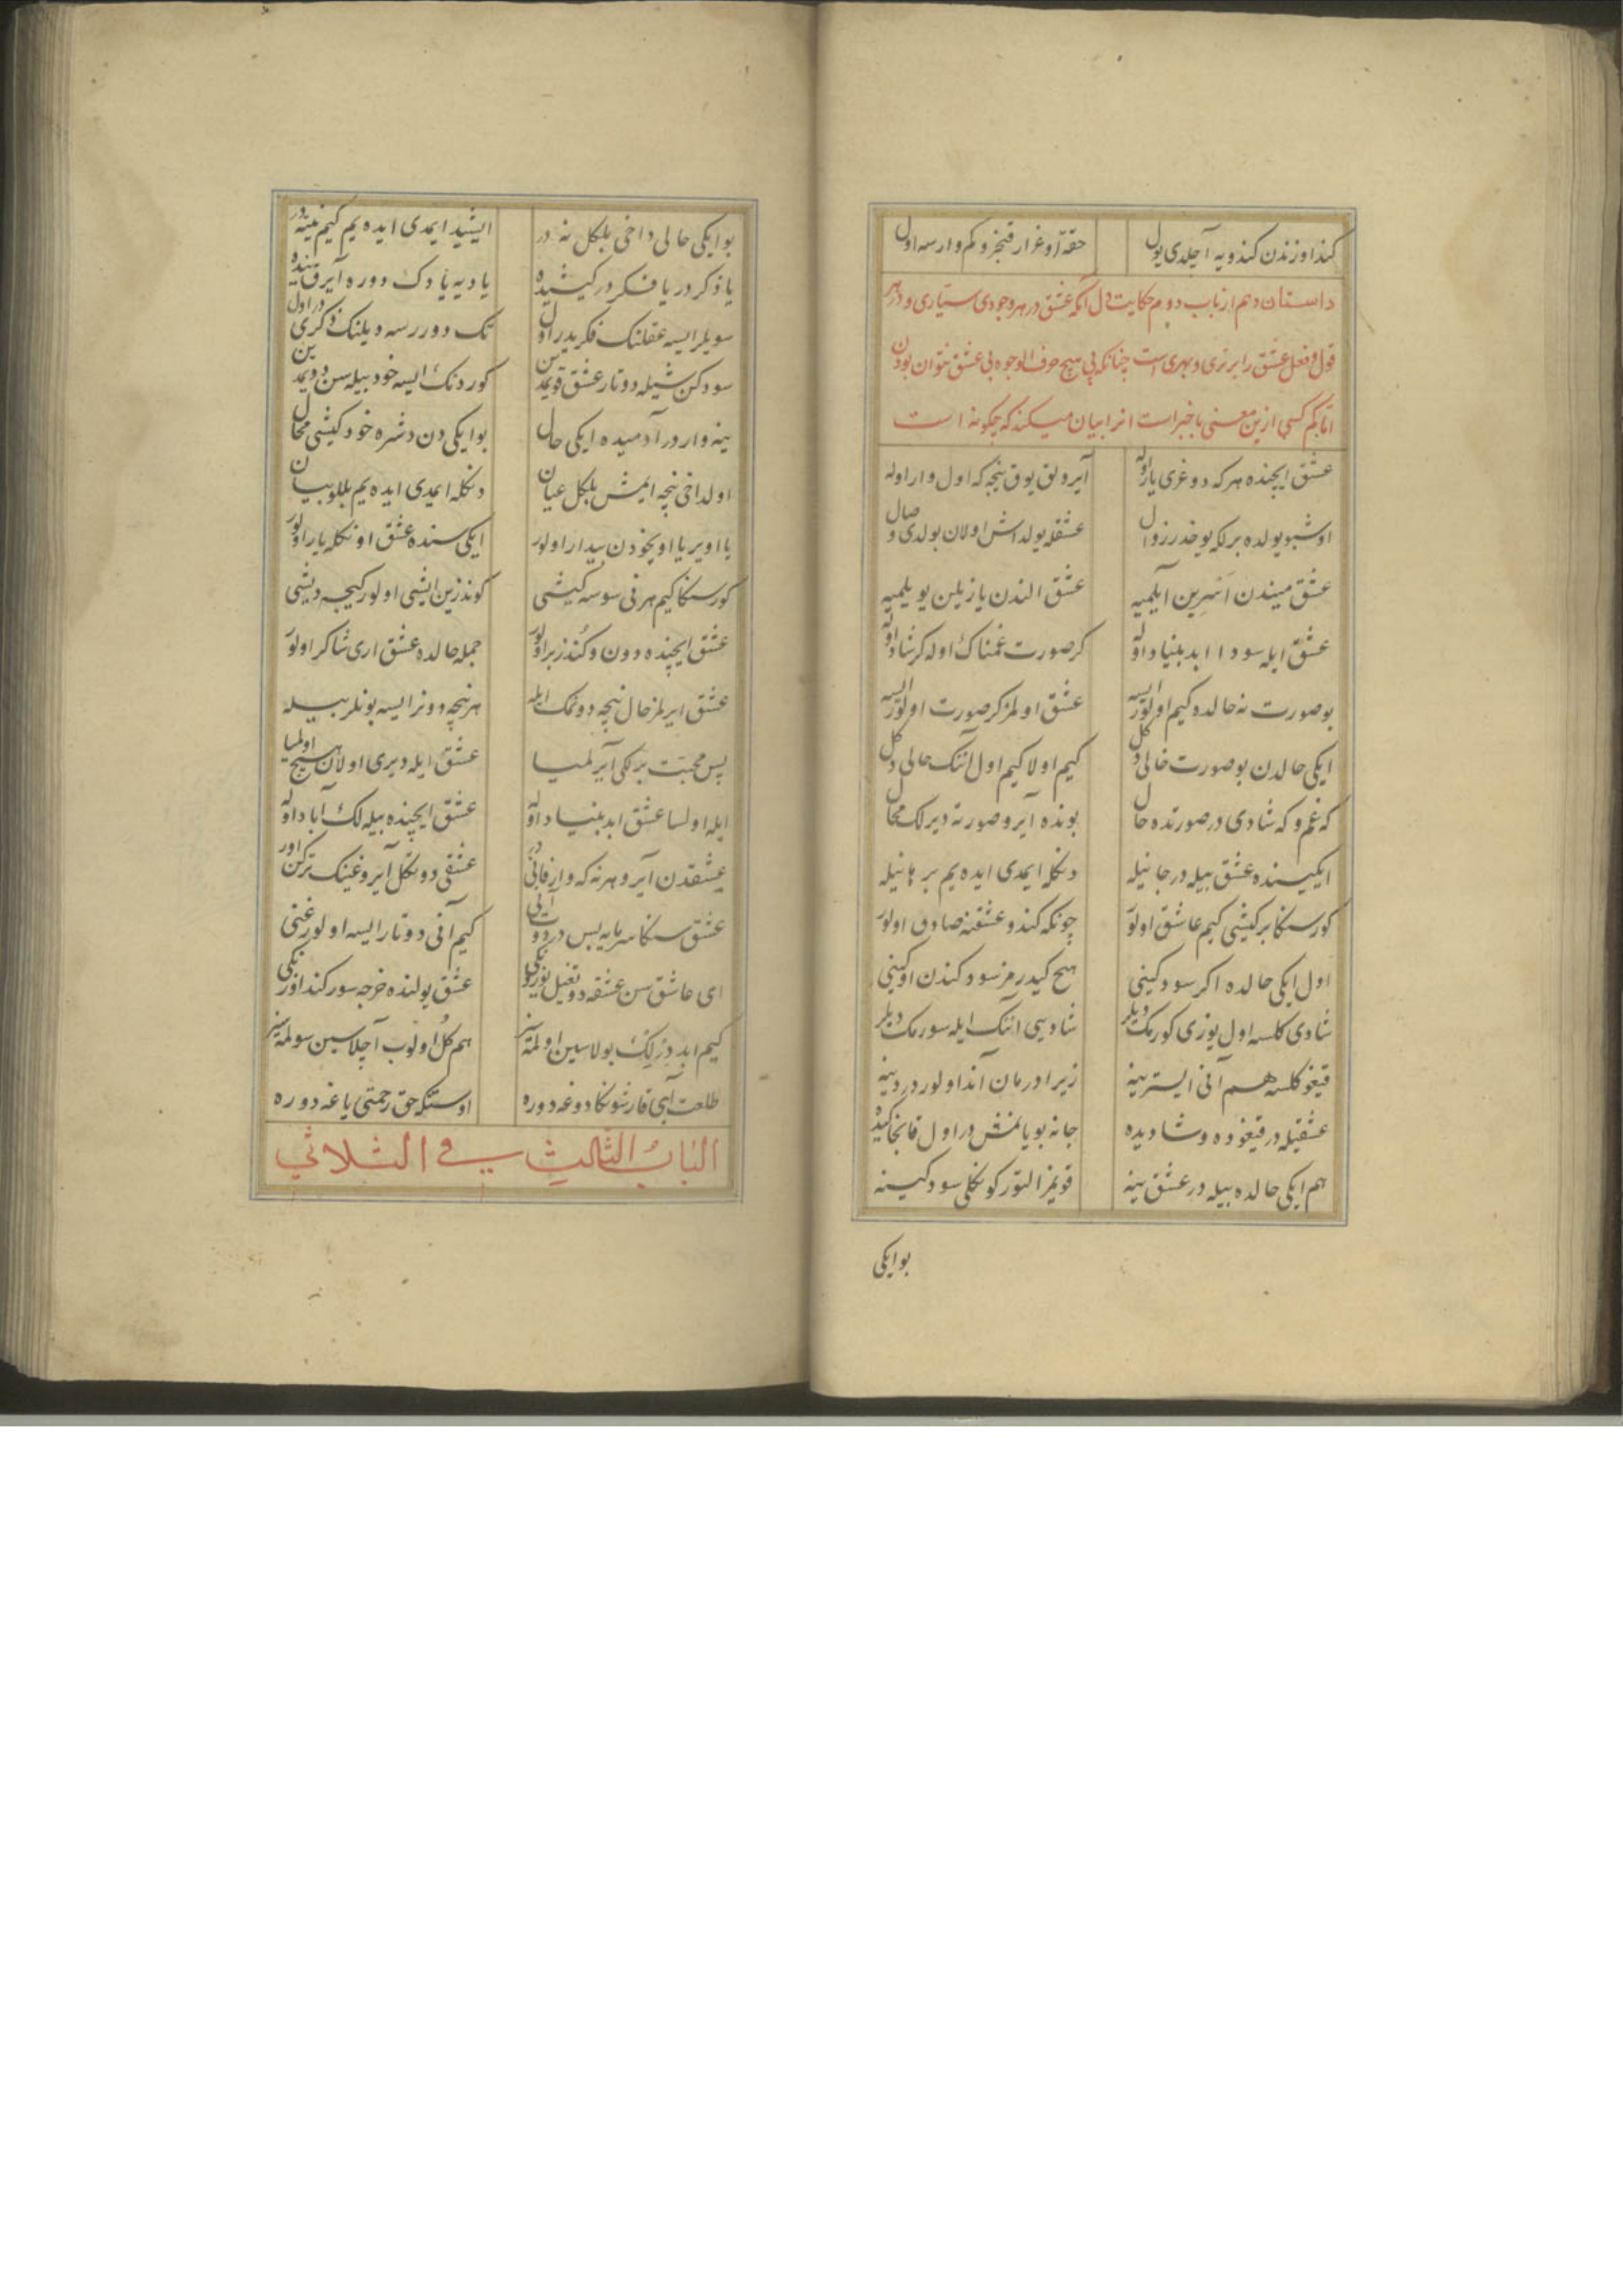 کنداوزندن کندویه آچلدی یول حقه اوغرار قنجرو کم وارسه اول
داستان دهم از باب دوم حکایت دل آنکه عشق در هر وجودی ستاری و در هر
قول و فعل عشق را برتری و بهری است چنانکه پی هیچ حرف الوجوه بی عشق نتوان بودن
اما کم کسی ازین معنی باخبر است انرا بیان میکند که چکونه است
عشق ایچنده هرکه دوغری یار اوله آیرولق یوق نیجه که اول وار اوله
اوشبو یولده برلکه یوخدر زوال عشقله یولداش اولان بولدی وصال
عشق میندن اسرین آیلمیه عشق الندن یازیلن یویلمیه
عشق ایله سودا ابد بنیاد اوله کر صورت غمناک اوله کر شاد اوله
بو صورت نه حالده کیم اولور ایسه عشق اولمز کر صورت اولور ایسه
ایکی حالدن بو صورت خالی دکل کیم اولا کیم اول آنک حالی دکل
که غم و که شادی در صورتده حال بونده آیرو صورته دیرلک محال
ایکیسنده عشق بیله در جانیله دنکله ایمدی ایده یم برهانیله
کورسنکا بر کیشی کیم عاشق اولور چونکه کندو عشقنه صادق اولور
اول ایکی حالده اکر سودکینی هیچ کیدرمز سودکندن اوکینی
شادی کلسه اول یوزی کورمک دیلر شادیسی آنک ایله سورمک دیلر
قیغو کلسه هم آنی ایستر ینه زیرا درمان آندا اولور دردینه
عشقیله در قیغوده و شادیده جانه بویانمش در اول قانجا کیده
هم ایکی حالده بیله در عشق ینه قویمز التور کونکلی سودکینه
بو ایکی
بو ایکی حالی داخی بلکل نه در ایشید ایمدی ایده یم کیم نیته در
یا ذکر در یا فکر در کیشیده یا دیه یا دک دوره آیرقسیده
سویلر ایسه عقلنک فکریدر اول تک دوررسه دیلنک ذکری در اول
سودکن شیله دوتار عشق قویمدین کوردنک ایسه خود بیله سن دویمدین
ینه وار در آدمیده ایکی حال بو ایکی دن دشره خود کیشی محال
اولداخی نیچه ایمش بلکل عیان دنکله ایمدی ایده یم بللو بیان
یا اویر یا اویخودن بیدار اولور ایکی سنده عشق اونکله یار اولور
کورسنکا کیم هر نی سوسه کیشی کوندزین ایشی اولور کیجه دیشی
عشق ایچنده دون و کندز بر اولور جمله حالده عشق اری شاکر اولور
عشق ایرلمز حال نیچه دونمک ایله هر نیچه دونر ایسه بونلر بیله
پس محبت برلکی آیرلمیا عشق ایله دیری اولان هیچ اولمیا
ایله اولسا عشق ابد بنیاد اوله عشق ایچنده بیله لک آباد اوله
عشقدن آیرو هر نه که وار فانی در عشقی دوتکل آیروغینک ترکن اور
عشق سنکا سرمایه بس در دوت آنی کیم آنی دوتار ایسه اولور غنی
ای عاشق سن عشقه دوتغیل یوزیکی عشق یولنده خرجه سور کنداوزیکی
کیم ابد دیرلک بولاسین اولمه سز هم کل اولوب آچلاسین سولمه سز
طلعت آیی قارشونکا دوغه دوره اوستکه حق رحمتی یاغه دوره
الباب الثالث فی الثلاثی